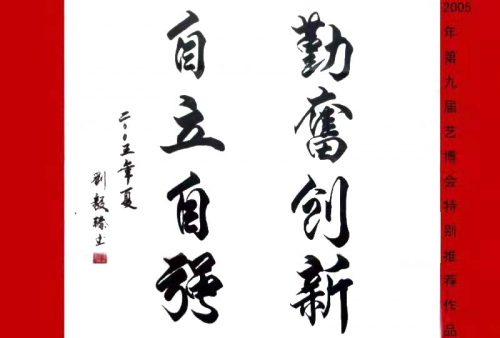 2005年第九届艺博会特别推荐作品
勤奮创新
自立自强
二〇〇五年夏
刘毅书